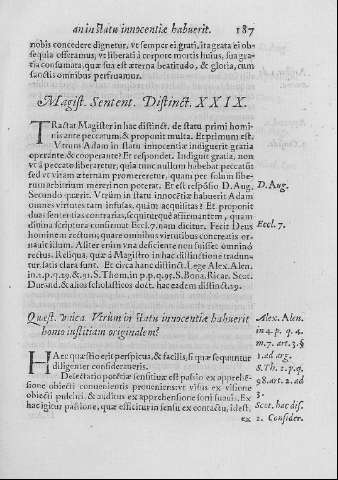 an in statu innocentiæ habuerit. 187
nobis concedere dignetur, vt semper ei grati, ita grata ei ob-
sequia offeramus, vt liberati à corpore mortis huius, sua gra-
tia consumata, quæ sua est æterna beatitudo, & gloria, cum
sanctis omnibus perfruamur.
Magist. Sentent. Distinct. XXIX.
TRactat Magister in hac distinct. de statu primi homi-
nis ante peccatum, & proponit multa. Et primum est.
Vtrum Adam in statu innocentiæ indiguerit gratia
operante, & cooperante? Et respondet. Indiguit gratia, non
vt à peccato liberaretur, quia tunc nullum habebat peccatū
sed vt vitam æternam promereretur, quam per solum libe-
rum arbitrium mereri non poterat. Et est respōsio D. Aug.
D. Aug.
Secundo quærit. Vtrùm in statu innocentiæ habuerit Adam
omnes virtutes tam infusas, quàm acquisitas? Et proponit
duas sententias contrarias, sequiturque affirmantem, quam
diuina scriptura confirmat Eccl. 7. nam dicitur. Fecit Deus
Eccl. 7.
hominem rectum, quare omnibus virtutibus concreatis or-
nauit illum. Aliter enim vna deficiente non fuisset omninò
rectus. Reliqua, quæ à Magistro in hac distinctione tradun-
tur, satis clara sunt. Et circa hanc distinct. Lege Alex. Alen.
in 2. p. q. 29. & 91. S. Thom. in p. p. q. 95. S. Bona. Ricar. Scot.
Durand. & alios scholasticos doct. hac eadem distinct. 29.
Quæst. vnica. Vtrùm in statu innocentiæ habuerit
homo iustitiam originalem?
Alex. Alen.
in 4. p. q. 4.
m. 7. art. 3. §
1. ad arg.
S. Th. 1. p. q.
98. art. 2. ad
3.
Scot. hac dis.
2. Consider.
HAec quæstio erit perspicua, & facilis, si quæ sequuntur
diligenter consideraueris.
Delectatio potētiæ sensitiuæ est passio ex apprehē-
sione obiecti conuenientis proueniens: vt visus ex visione
obiecti pulchri, & auditus ex apprehensione soni suauis. Ex
hac igitur passione, quæ efficitur in sensu ex contactu, idest,
ex